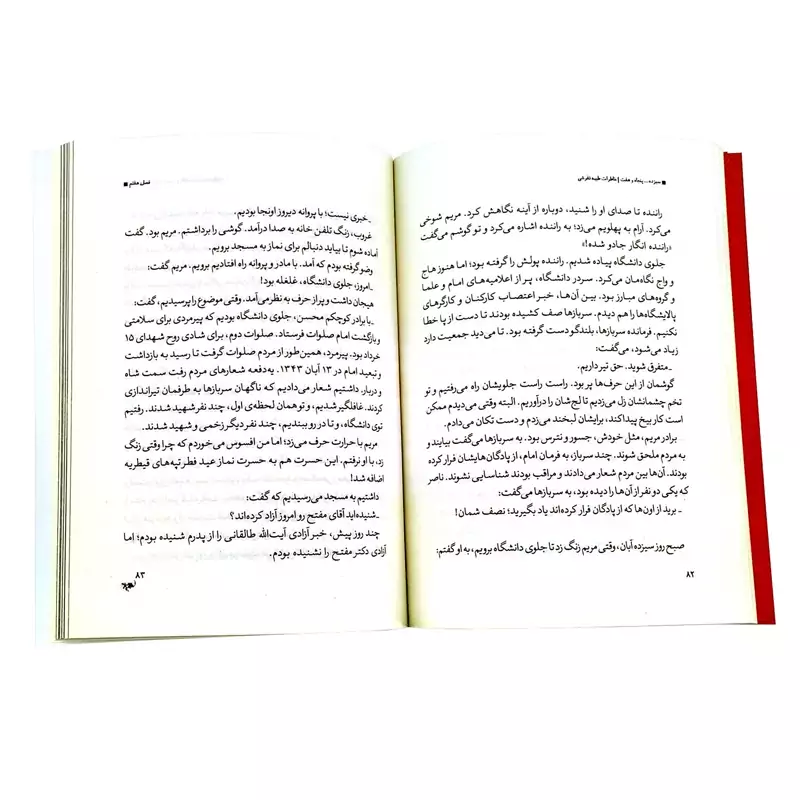 سیزده... پنجاه و هفت | خاطرات طیبه
راننده تا صدای او را شنید، دوباره از آینه نگاهش کرد. مریم شوخی
می‌کرد. آرام به پهلویم می‌زد؛ به راننده اشاره می‌کرد و تو گوشم می‌گفت
«راننده انگار جادو شده!»
جلوی دانشگاه پیاده شدیم. راننده پولش را گرفته بود؛ اما هنوز هاج
و واج نگاه‌مان می‌کرد. سردر دانشگاه، پر از اعلامیه‌های امام و علما و
گروه‌های مبارز بود. بین آن‌ها، خبر اعتصاب کارکنان و کارگرهای
پالایشگاه‌ها را هم دیدم. سربازها صف کشیده بودند تا دست از پا خطا
نکنیم. فرمانده سربازها، بلندگو دست گرفته بود. تا می‌دید جمعیت دارد
زیاد می‌شود، می‌گفت:
ـ متفرق شوید. حق تیر داریم.
گوشمان از این حرف‌ها پر بود. راست راست جلویشان راه می‌رفتیم و تو
تخم چشمانشان زل می‌زدیم تا لج‌شان را درآوریم. البته وقتی می‌دیدم ممکن
است کار بیخ پیدا کند، برایشان لبخند می‌زدم و دست تکان می‌دادم.
برادر مریم، مثل خودش، جسور و نترس بود. به سربازها می‌گفت بیایند و
به مردم ملحق شوند. چند سرباز، به فرمان امام، از پادگان‌هایشان فرار کرده
بودند. آن‌ها بین مردم شعار می‌دادند و مراقب بودند شناسایی نشوند. ناصر
که یکی دو نفر از آن‌ها را دیده بود، به سربازها می‌گفت:
ـ برید از اون‌ها که از پادگان فرار کرده‌اند یاد بگیرید؛ نصف شمان!
صبح روز سیزده آبان، وقتی مریم زنگ زد تا جلوی دانشگاه برویم، به او گفتم:
۸۲
فصل هفتم
ـ خبری نیست؛ با پروانه دیروز اونجا بودیم.
غروب، زنگ تلفن خانه به صدا درآمد. گوشی را برداشتم. مریم بود. گفت
آماده شوم تا بیاید دنبالم برای نماز به مسجد برویم.
وضو گرفته بودم که آمد. با مادر و پروانه راه افتادیم برویم. مریم گفت:
ـ امروز، جلوی دانشگاه، غلغله بود!
هیجان داشت و پر از حرف به نظر می‌آمد. وقتی موضوع را پرسیدیم، گفت:
ـ با برادر کوچکم محسن، جلوی دانشگاه بودیم که پیرمردی برای سلامتی
و بازگشت امام صلوات فرستاد. صلوات دوم، برای شادی روح شهدای ۱۵
خرداد بود. پیرمرد، همین‌طور از مردم صلوات گرفت تا رسید به بازداشت
و تبعید امام در ۱۳ آبان ۱۳۴۳. یه‌دفعه شعارهای مردم رفت سمت شاه
و دربار. داشتیم شعار می‌دادیم که ناگهان سربازها به طرفمان تیراندازی
کردند. غافلگیر شدیم، و تو همان لحظه‌ی اول، چند نفر شهید شدند. رفتیم
توی دانشگاه، و تا در رو ببندیم، چند نفر دیگر زخمی و شهید شدند.
مریم با حرارت حرف می‌زد؛ اما من افسوس می‌خوردم که چرا وقتی زنگ
زد، با او نرفتم. این حسرت هم به حسرت نماز عید فطر تپه‌های قیطریه
اضافه شد!
داشتیم به مسجد می‌رسیدیم که گفت:
ـ شنیده‌اید آقای مفتح رو امروز آزاد کرده‌اند؟
چند روز پیش، خبر آزادی آیت‌الله طالقانی را از پدرم شنیده بودم؛ اما
آزادی دکتر مفتح را نشنیده بودم.
۸۳